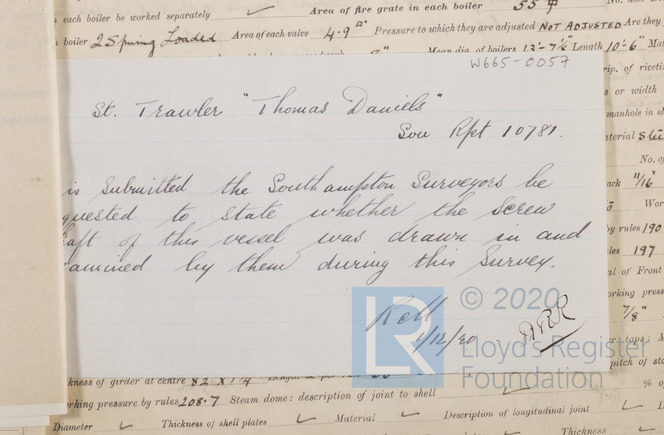 each boiler be worked separately ✓ Area of fire grate in each boiler 55 ⏀
boiler 2 Spring Loaded Area of each valve 4.9 □" Pressure to which they are adjusted NOT ADJUSTED Are they
Mean dia. of boilers 13'-7½" Length 10'-6" Ma
W665-0057
rip. of riveti
s or width
manhole in sh
aterial Ste
No. of
ack 11/16"
Wor
by rules 190
rules 197
al of Front
orking press
7/8"
pitch of sta
St. Trawler "Thomas Daniels"
Sou Rpt 10781.
is submitted the Southampton Surveyors be
quested to state whether the screw
haft of this vessel was drawn in and
amined by them during this Survey.
1/12/20
LR
© 2020
Lloyd's Register
Foundation
kness of girder at centre
orking pressure by rules 208.7 Steam dome: description of joint to shell ✓ % o
Diameter ✓ Thickness of shell plates ✓ Material ✓ Description of longitudinal joint ✓
Thickness ✓